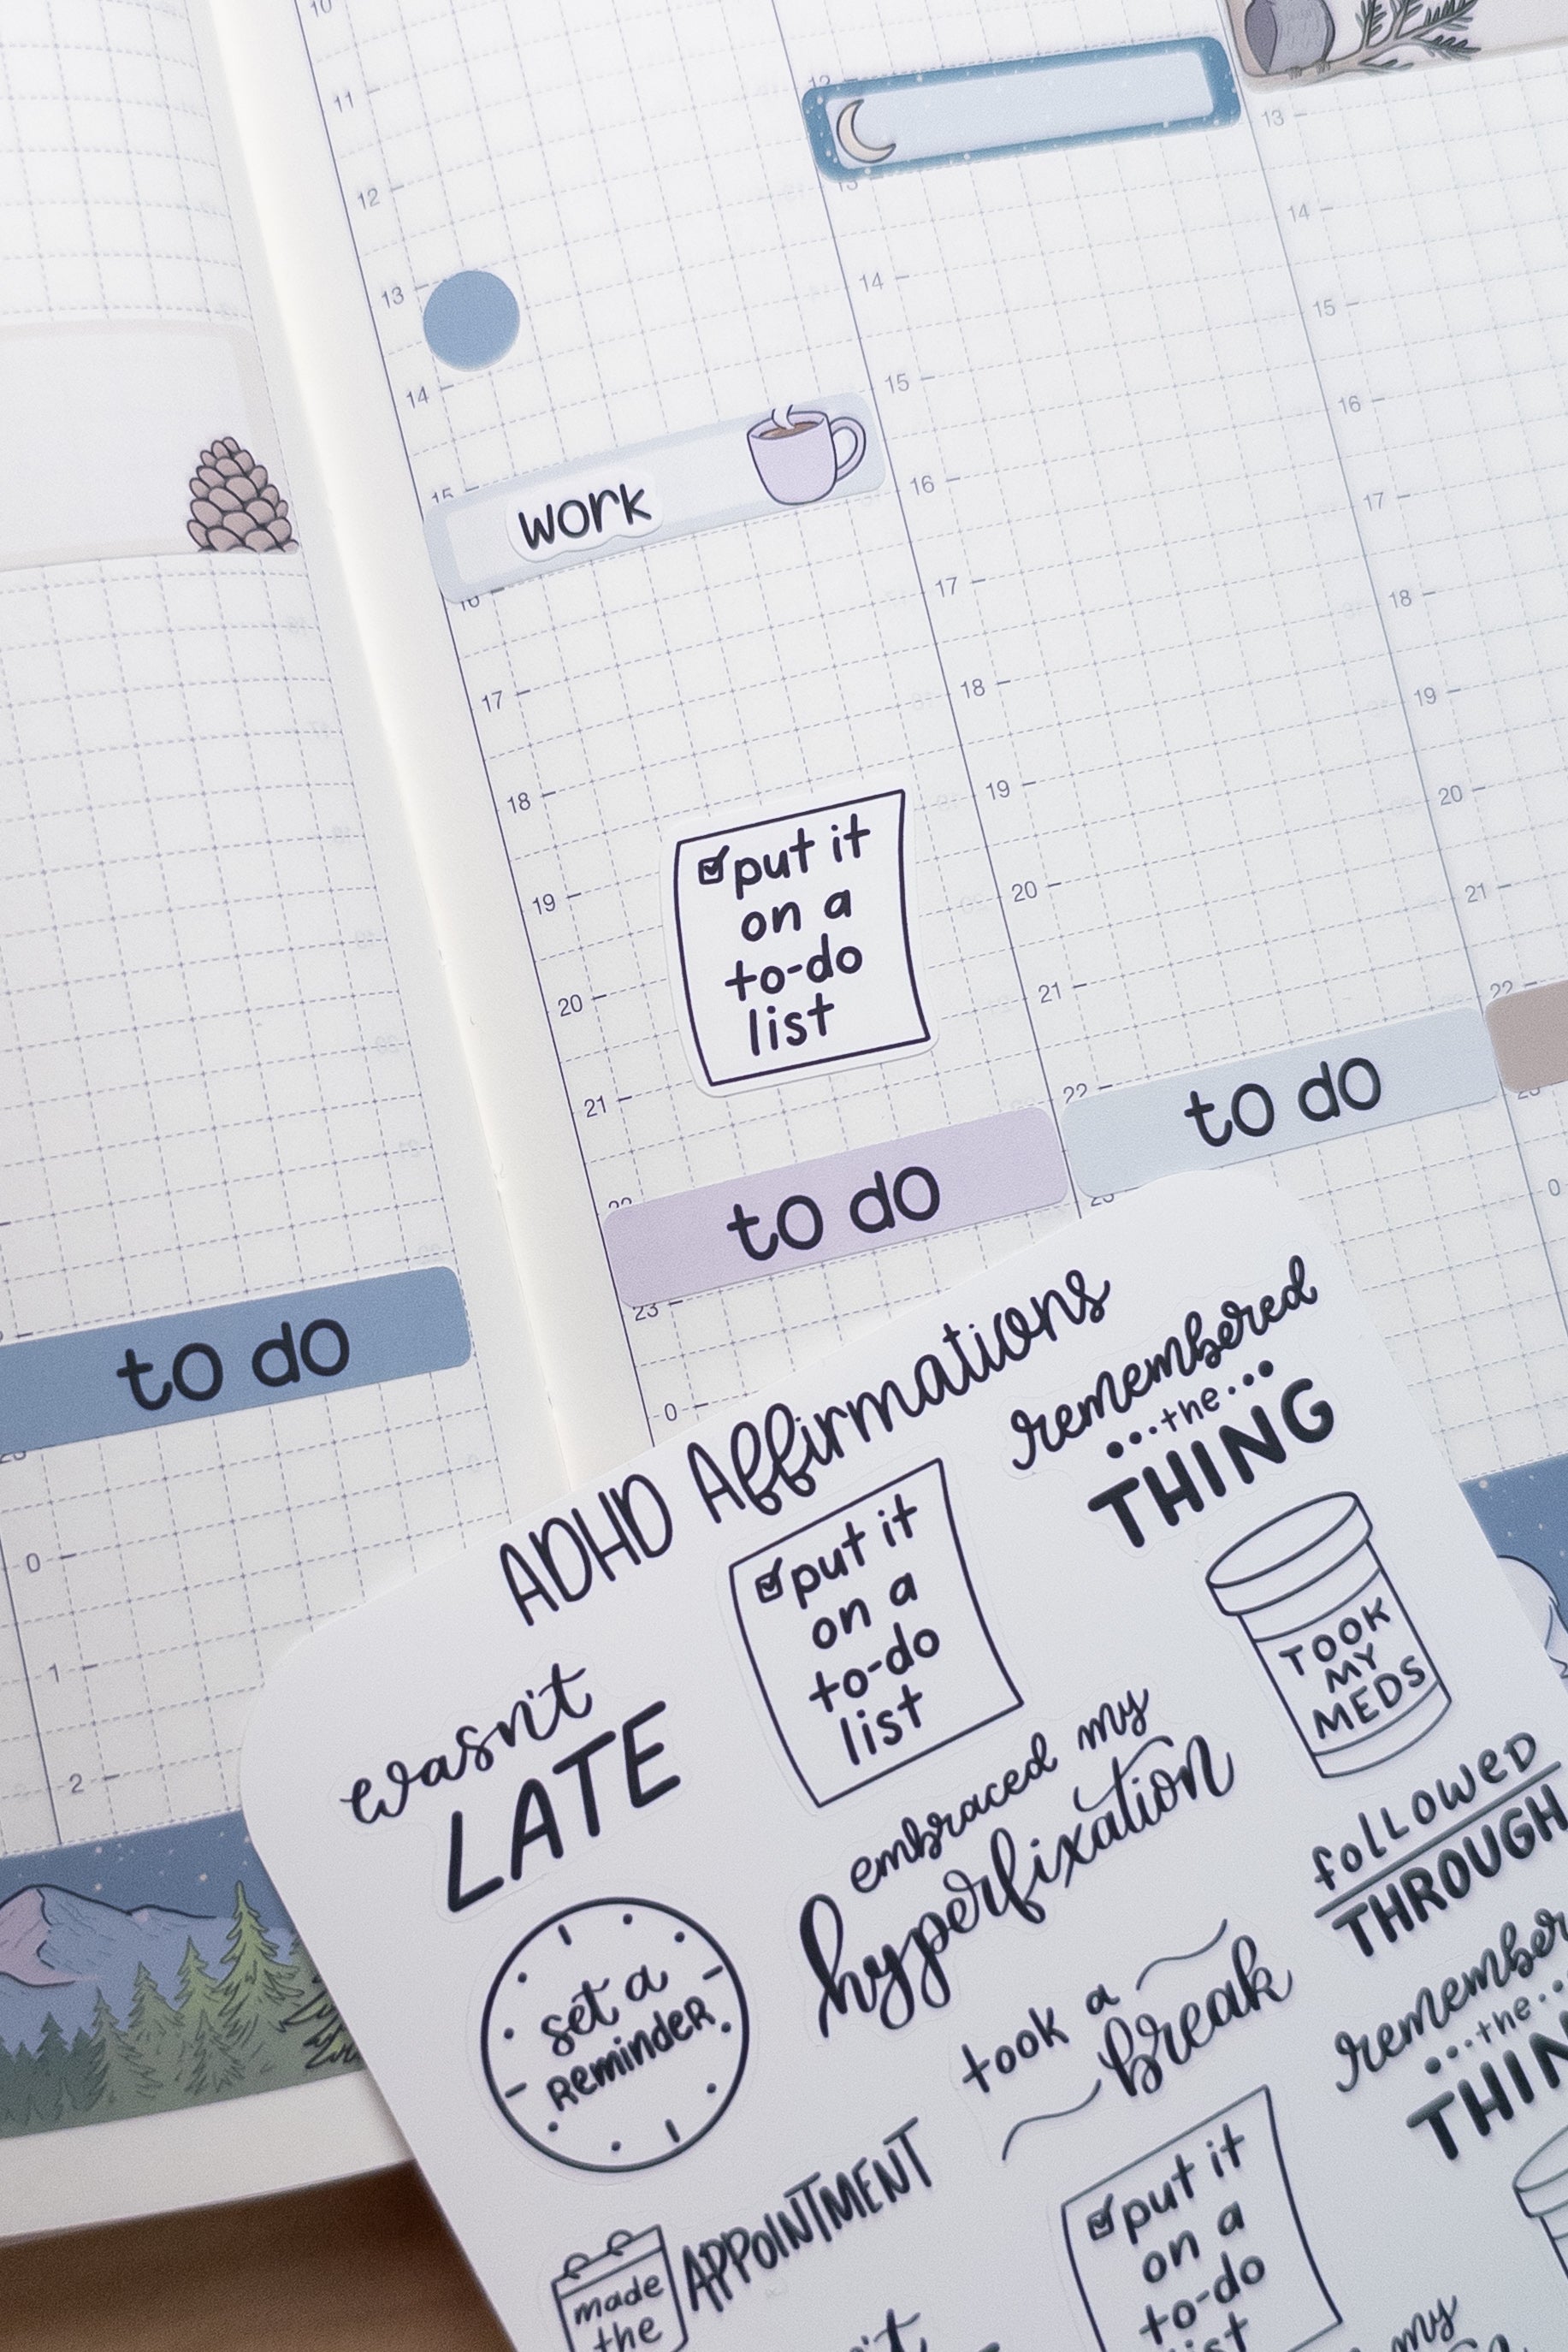 10
11
12
13
14
15
16
17
18
19
20
21
22
23
0
12
13
14
15
16
17
18
19
20
21
22
23
13
14
15
16
17
18
19
20
21
22
23
0
work
☑ put it
on a
to-do
list
to do
to do
to do
23
0
1
2
ADHD Affirmations
remembered
...the...
THING
☑ put it
on a
to-do
list
TOOK
MY
MEDS
wasn't
LATE
embraced my
hyperfixation
followed
THROUGH
set a
Reminder
took a
break
remember
...the...
THIN
made
the
APPOINTMENT
☑ put it
on a
to-do
list
my